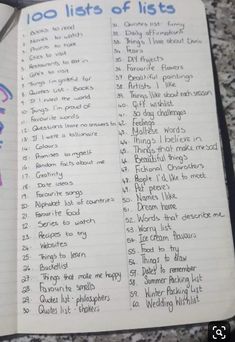 100 lists of lists
1. Books to read
2. Movies to watch
3. Places to
4. Cities to visit
5. Restaurants to eat in
6. Cafés to visit
7. Things I'm grateful for
8. Quotes list - Books
9. If I ruled the world
10. Things I'm proud of
11. Favourite words
12. Questions I have no answers to
13. If I were a billionaire
14. Colours
15. Promises to myself
16. Random facts about me
17. Creativity
18. Date ideas
19. Favourite songs
20. Alphabet list of countries
21. Favourite food
22. Series to watch
23. Recipes to try
24. Websites
25. Things to learn
26. Bucketlist
27. Things that make me happy
28. Favourite smells
29. Quotes list - philosophers
30. Quotes list -
31. Quotes list - funny
32. Daily affirmations
33. Things I love about
34. Fears
35. DIY Projects
36. Favourite flowers
37. Beautiful paintings
38. Artists I like
39. Things I like about each season
40. Gift wishlist
41. 30 day challenges
42. Feelings
43. Words
44. Things I believe in
45. Things that make me sad
46. Beautiful things
47. Fictional Characters
48. People I'd like to meet
49. Pet peeves
50. Names I like
51. Dream home
52. Words that describe me
53. Worry list
54. Ice cream flavours
55. Food to try
56. Things to draw
57. Dates to remember
58. Summer Packing list
59. Winter Packing list
60. Wedding Wishlist